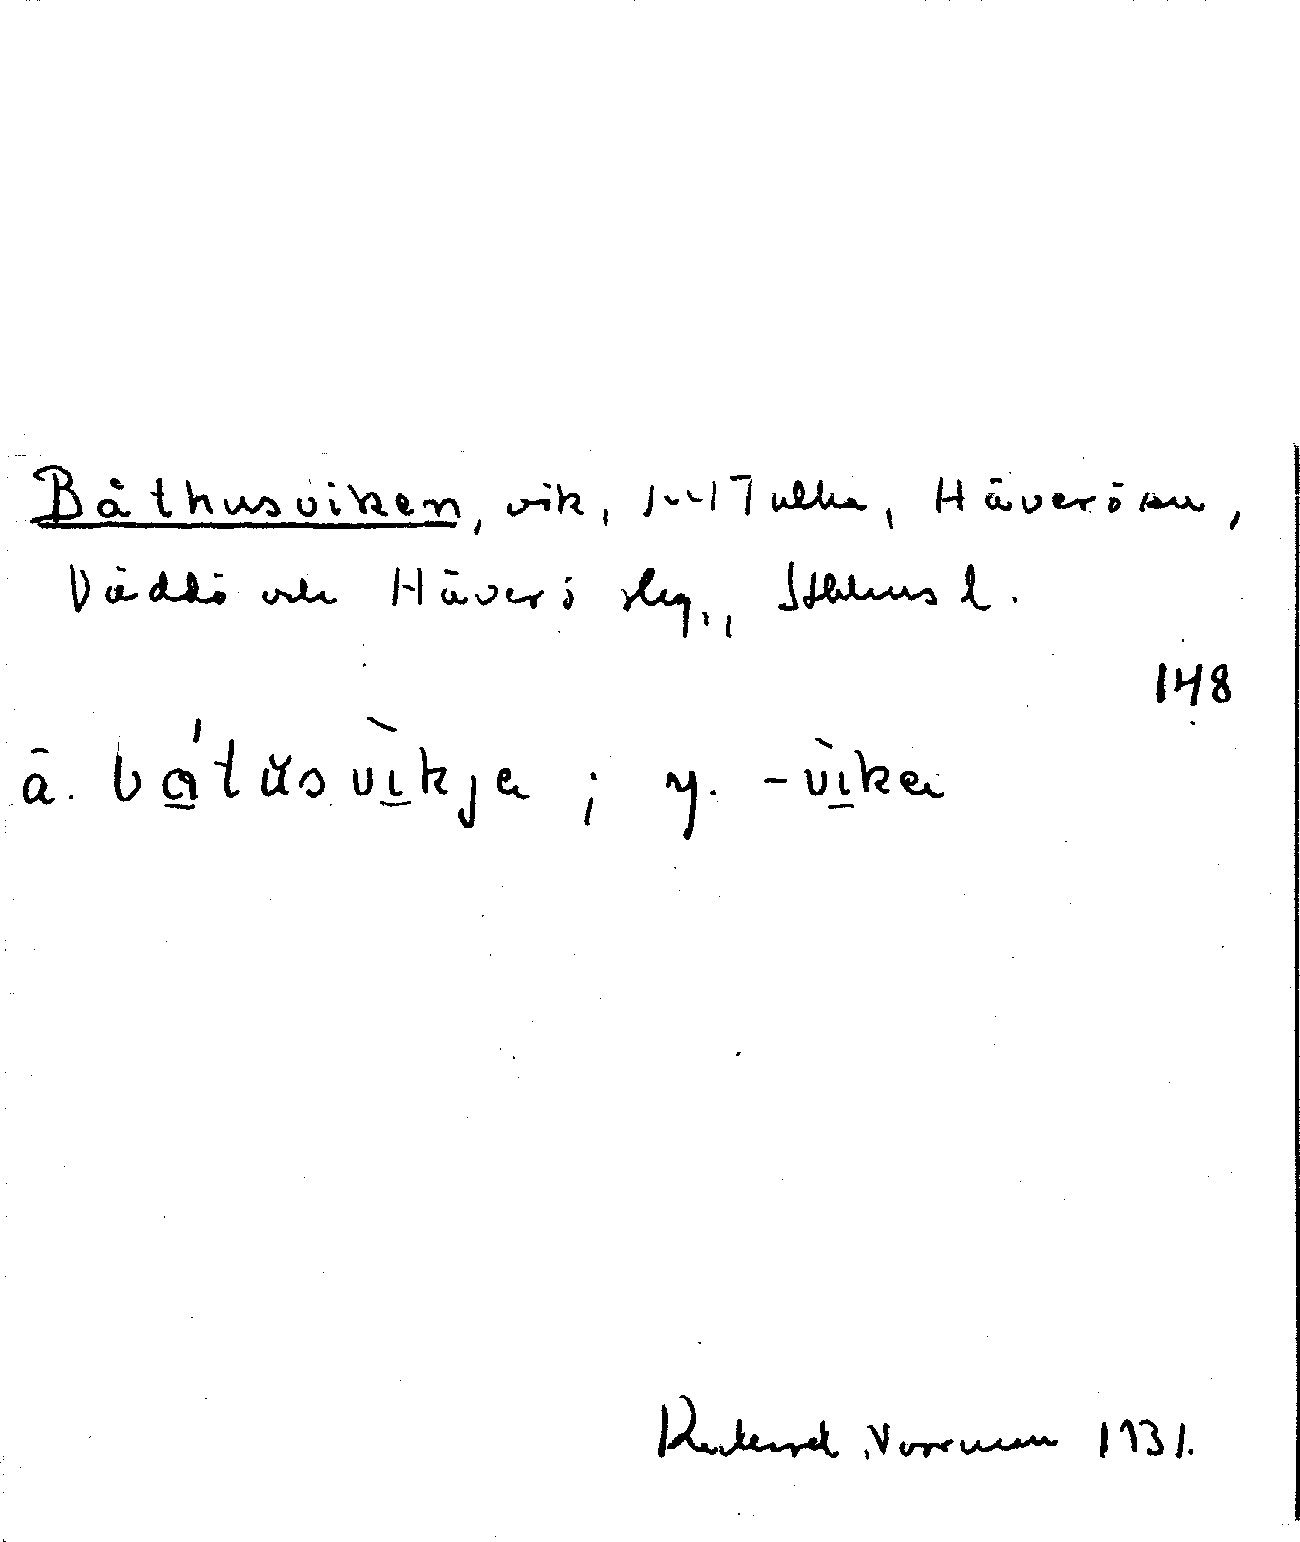 Båthusviken, vik, 1–17 ulka, Häverö sn,
Väddö och Häverö slg., Sthlms l.
148
ä. båtŭsvìkja ; y. -vìka
Norrman 1931.